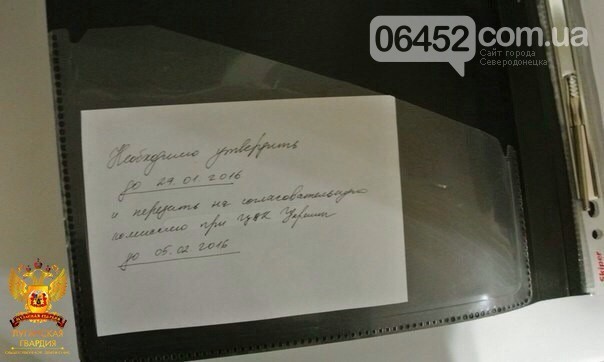 06452.com.ua
Сайт города
Северодонецка
Необходимо утвердить
до 29.01.2016
и передать на согласовательную
комиссию при ЦИК Украины
до 05.02.2016
skiper
ГВАРДИЯ